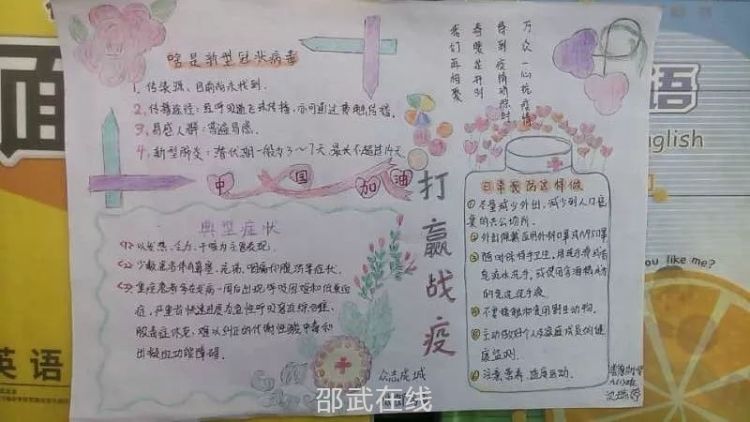 啥是新型冠状病毒
1、传染源：目前尚未找到。
2、传播途径：经呼吸道飞沫传播，亦可通过接触传播。
3、易感人群：普遍易感。
4、新型肺炎：潜伏期一般为3～7天，最长不超过14天。
中国加油
万众一心抗疫情
待到疫情消除时
春暖花开列
我们再相聚
典型症状
<1> 以发热、乏力、干咳为主要表现。
<2> 少数患者伴有鼻塞、流涕、咽痛和腹泻等症状。
<3> 重症患者多在发病一周后出现呼吸困难和低氧血
症，严重者快速进展为急性呼吸窘迫综合征、
脓毒症休克、难以纠正的代谢性酸中毒和
出凝血功能障碍。
打赢战疫
日常预防这样做
① 尽量减少外出，减少到人口密
集的公共场所。
② 外出佩戴医用外科口罩或N95口罩
③ 随时保持手卫生，用洗手液或香
皂流水洗手，或使用含酒精成分
的免洗洗手液。
④ 不要接触和食用野生动物。
⑤ 主动做好个人与家庭成员的健
康监测。
⑥ 注意营养，适度运动。
众志成城
邵武在线
面
语
English
you like me?
英语